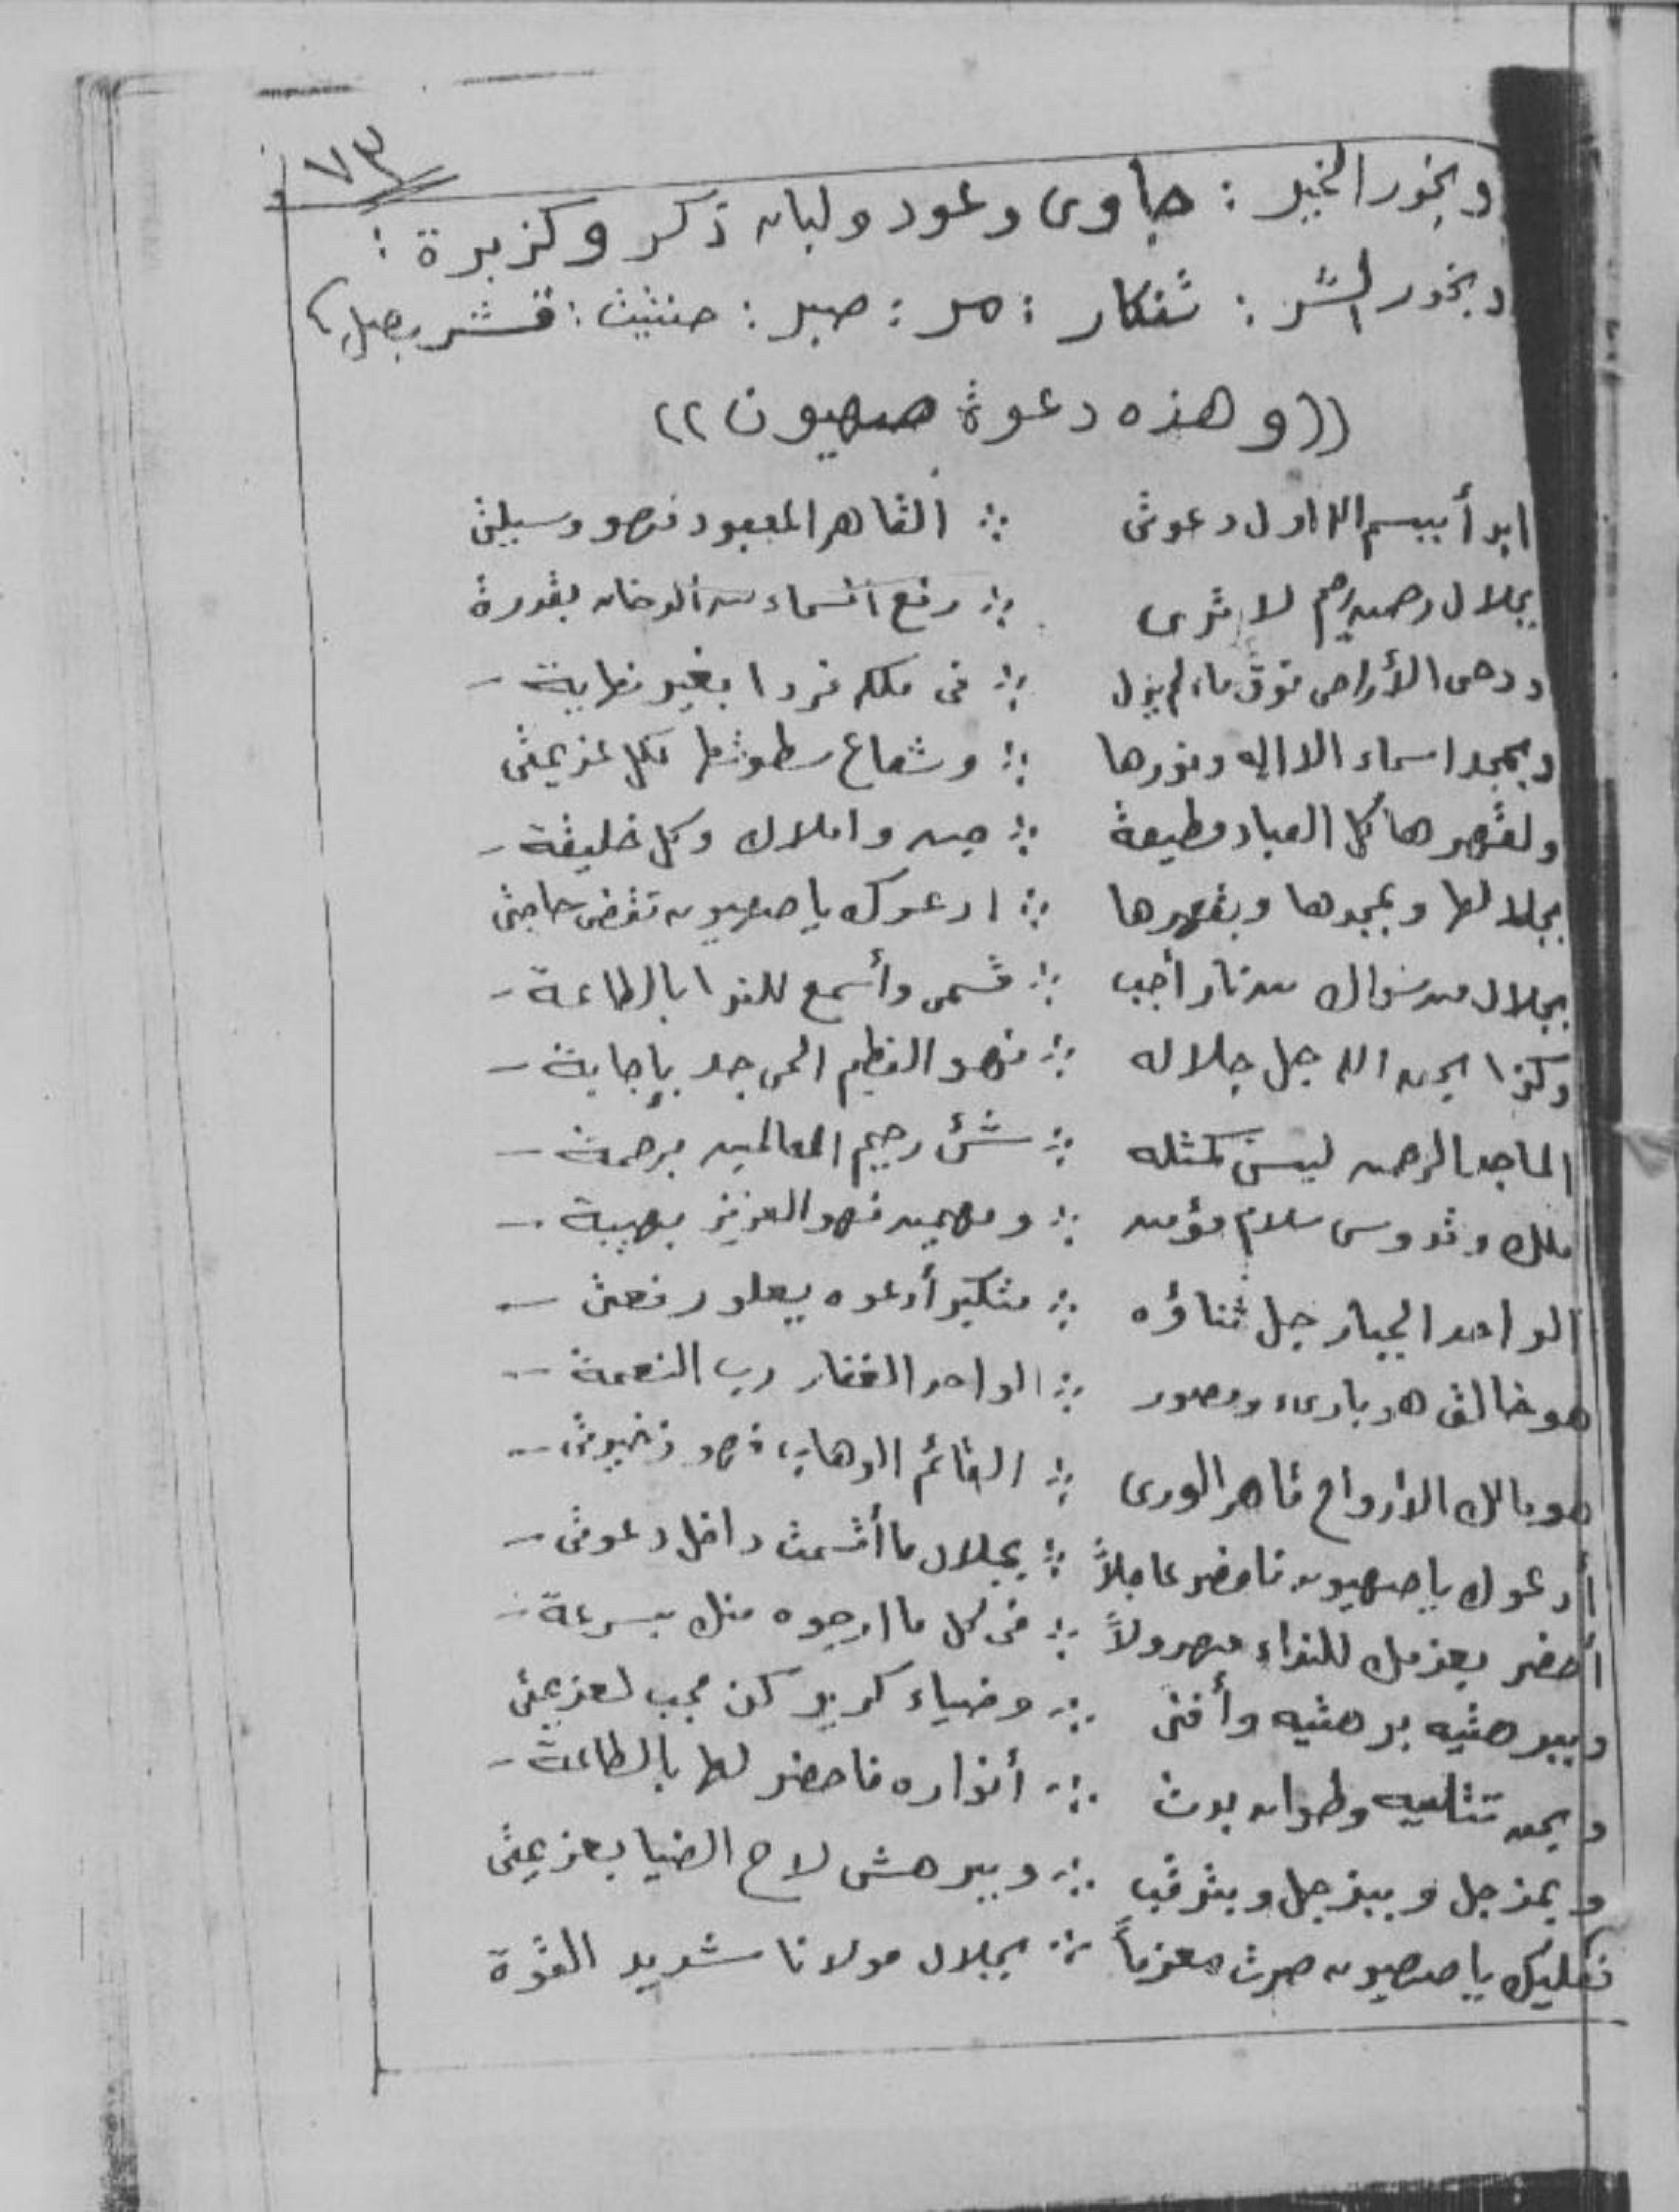 ٧٣
وبخور الخير : جاوى وعود ولبان ذكر وكزبرة :
وبخور الشر : تنكار : مر : صبر : حنتيت : قشر بصل
((وهذه دعوة صهيون))
ابدأ ببسم الله اول دعوتى ∴ القاهر المعبود فهو وسيلتى
بجلال رحمن رحيم لا ترى ∴ رفع السماء من الدخان بقدرة
ودحى الأراضى فوق ماء لم يزل ∴ فى ملكه فردا بغير نهاية -
وبمجد اسماء الاله ونورها ∴ وشعاع سطوتها لكل عزيمتى
ولقهرها كل العباد مطيعة ∴ جن واملاك وكل خليقة -
بجلالها وبمجدها وبقهرها ∴ ادعوك يا صهيون تقضى حاجتى
بجلال من سواك من نار أجب ∴ قسمى وأسمع للندا بالطاعة -
وكذا بحق الله جل جلاله ∴ فهو العظيم الحى جد بإجابة -
الماجد الرحمن ليس كمثله ∴ شئ رحيم العالمين برحمة -
ملك وقدوس سلام مؤمن ∴ ومهيمن فهو العزيز بهيبة -
الواحد الجبار جل ثناؤه ∴ متكبر أدعوه يعلو رفعتى -
هو خالق هو بارىء ومصور ∴ الواحد الغفار رب النعمة -
هو مالك الارواح قاهر الورى ∴ القائم الوهاب فهو ذخيرتى -
أدعوك يا صهيون فاحضر عاجلاً ∴ بجلال ما أقسمت داخل دعوتى -
أحضر بعزمك للنداء مهرولاً ∴ فى كل ما ارجوه منك بسرعة -
وببرهتيه برهتيه وأفنى ∴ وضياء كرير كن مجب لعزيمتى
وبحق تتليه وطوان بدت ∴ أنواره فاحضر لها بالطاعة -
وبمزجل وببزجل وبترقب ∴ وببرهش لاح الضيا بعزيمتى
فعليك يا صهيون صرت معزماً ∴ بجلال مولانا شديد القوة